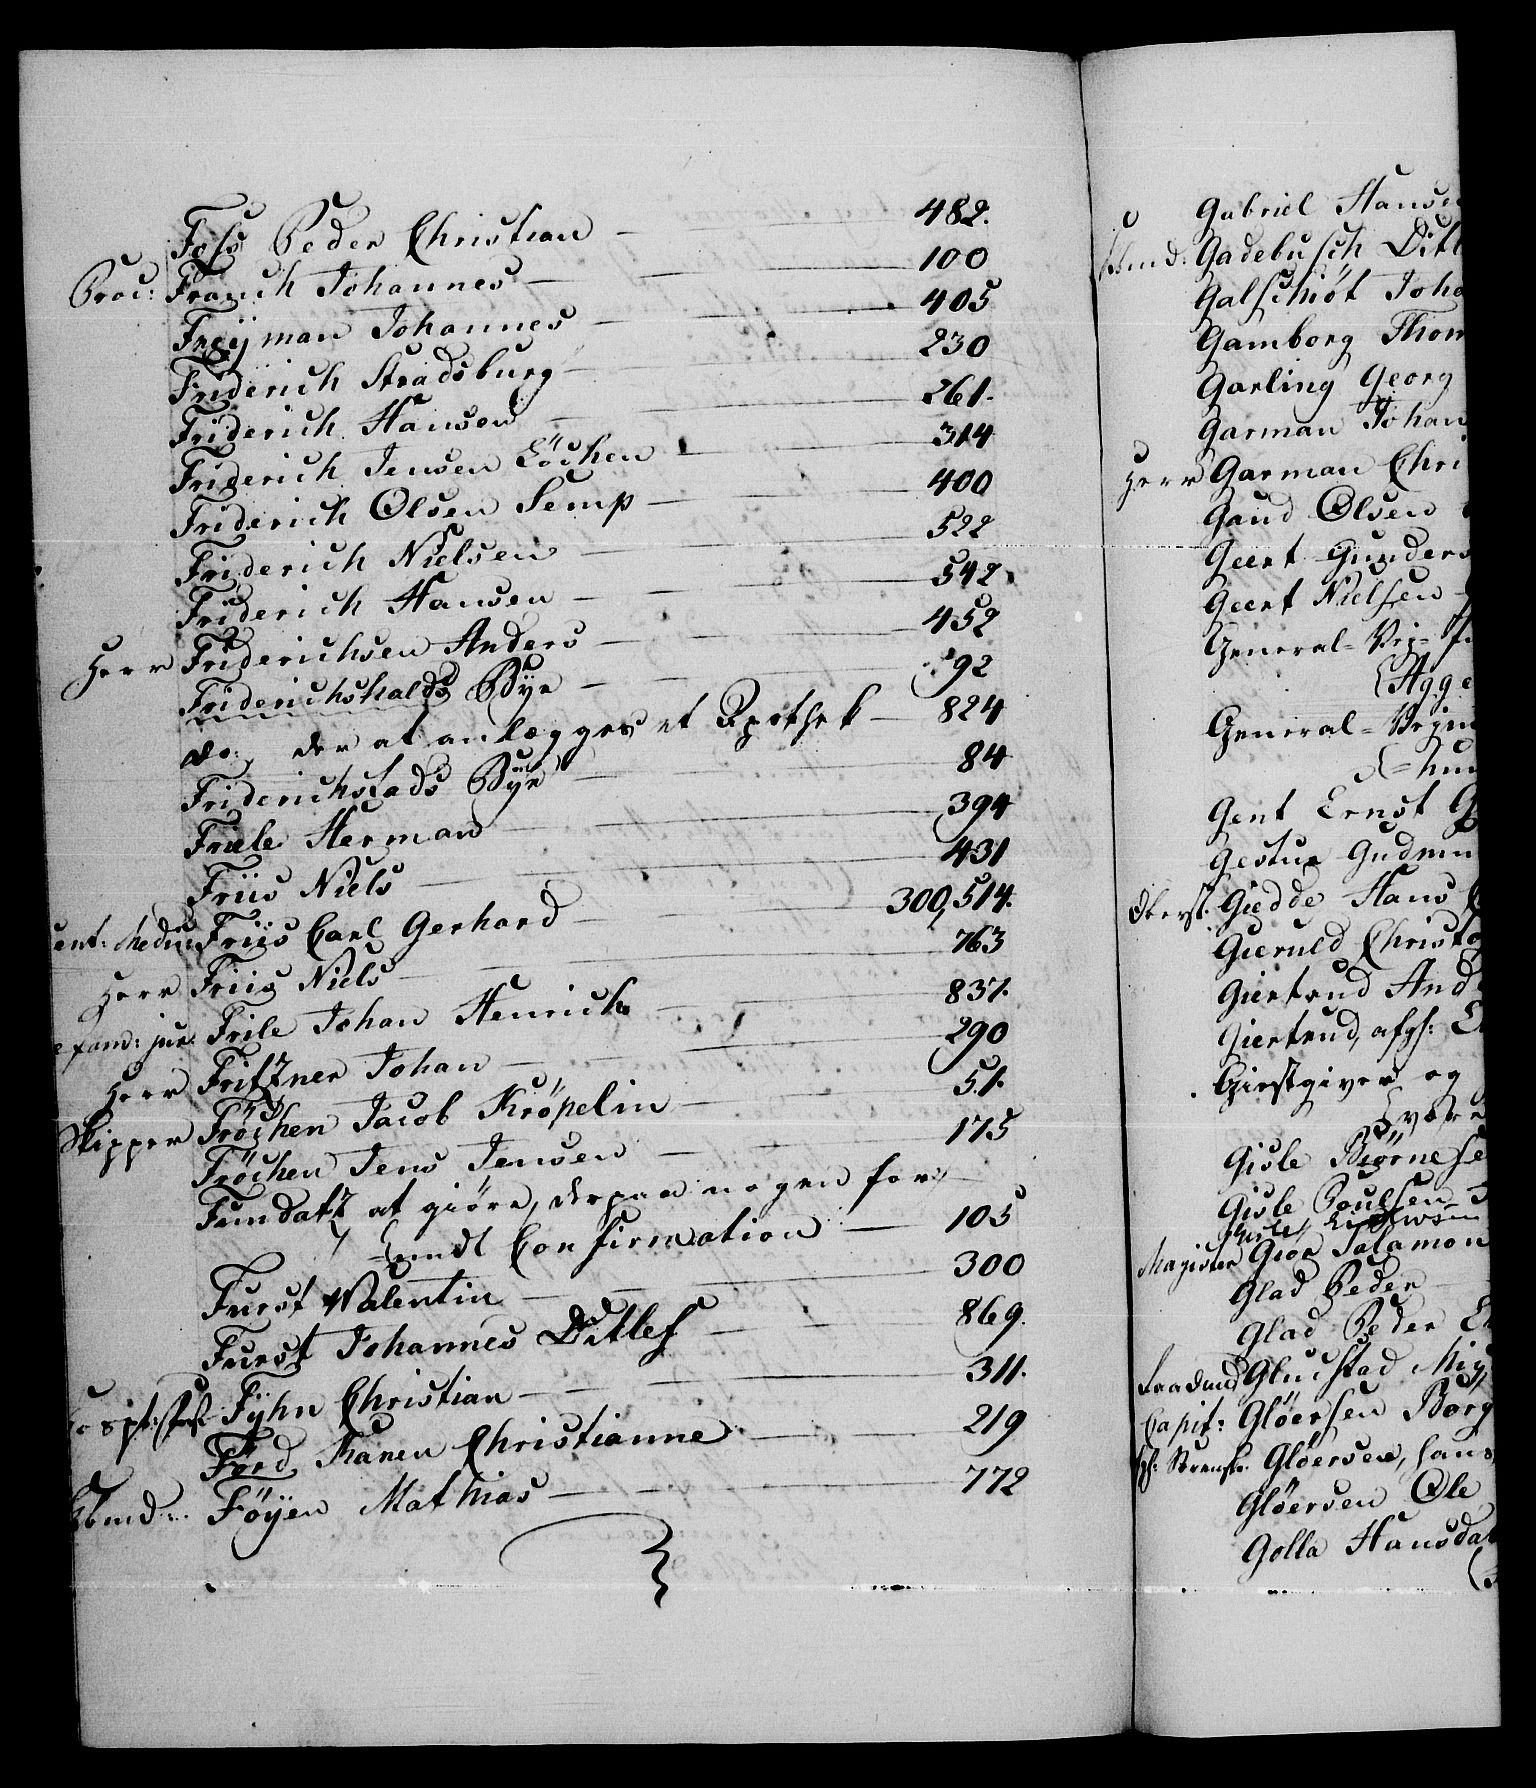 Fols Peder Christian — 482.
Proc: Franch Johannes — 100
Freÿman Johannes — 405
Friderich Stradsburg — 230
Friderich Hansen — 261.
Friderich Jensen Löchen — 314
Friderich Olsen Semp — 400
Friderich Nielsen — 522
Friderich Hansen — 542
Herr Friderichsen Anders — 452
Friderichshalds Bÿe — 92
do, der at anlægges et Apothek — 824
Friderichstads Bÿe — 84
Friele Herman — 394
Friis Niels — 431
Friis Carl Gerhard — 300, 514.
Herr Friis Niels — 763
Frile Johan Henrich — 837.
Herr Fritzner Johan — 290
Skipper Fröchen Jacob Kröpelin — 51.
Fröchen Jens Jensen — 175
Fundatz at giöre, derpaa nogen for-
undt Confirmation — 105
Furst Valentin — 300
Furst Johannes Ditlef — 869.
Fÿhn Christian — 311.
Förd Karen Christianne — 219
Föÿen Mathias — 772
Gabriel Hanse
Gadebusch Ditl
Galschiöt Joha
Gamborg Thom
Garling Georg
Garman Johan
Herr Garman Chri
Gaud Olsen
Geert Gunders
Geert Nielsen
General-Vej-
Agge
General-Vejm
Gent Ernst G
Gestur Gudmu
Oberst. Giedde Hans
Gieruld Christo
Giertrud And
Giertrud, afgl: E
Giestgiver og
være
Gisle Biörnese
Gisle Poulsen
Magister Giör Salamon
Glad Peder
Glad Peder E
Gluchstad Mi
Capit: Glöersen Börg
Glöersen, Hans
Glöersen Ole
Golla Hansdat